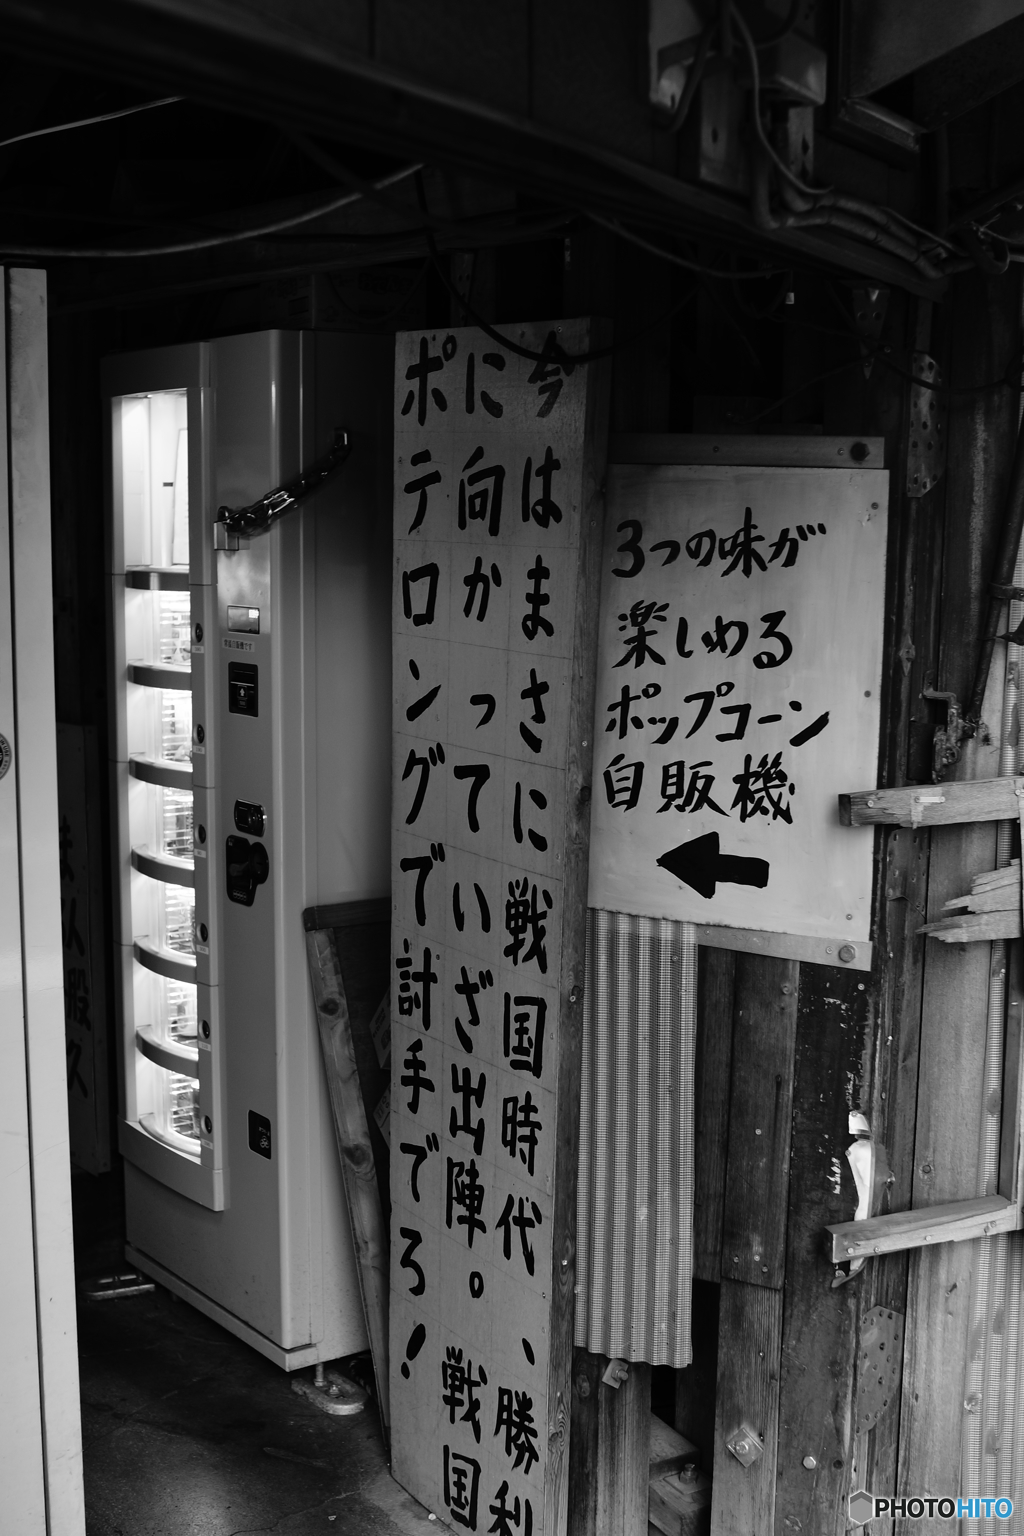 今はまさに戦国時代、勝利
に向かっていざ出陣。戦国
ポテロングで討手でろ！
3つの味が
楽しめる
ポップコーン
自販機
PHOTOHITO